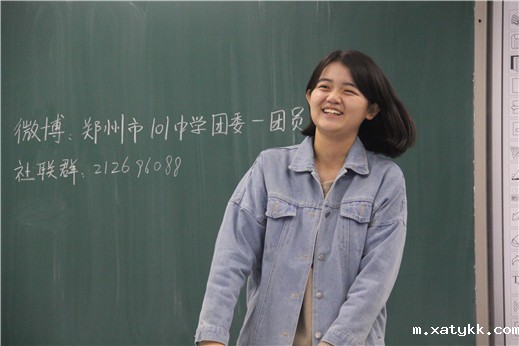 微博：郑州市101中学团委一团员
社联群：212696088
m.xatykk.com